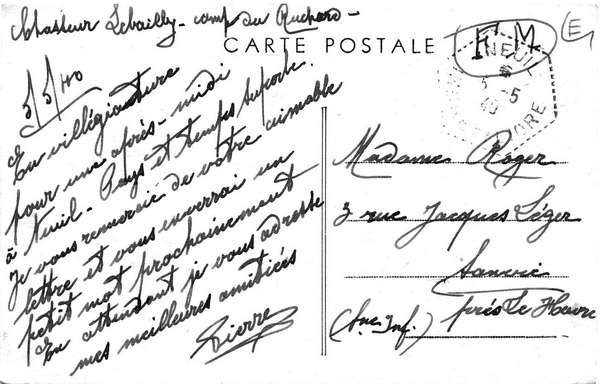 Chasseur Lebailly - camp du Ruchard -
CARTE POSTALE
F. M.
E
NEUIL
5 -5
40
INDRE
5/5/40
En villégiature
pour une après-midi
à Neuil - Pays et temps superbe.
Je vous remercie de votre aimable
lettre et vous enverrai un
petit mot prochainement
En attendant je vous adresse
mes meilleures amitiés
Pierre
Madame Roger
3 rue Jacques Léger
Sanvic
près Le Havre
(Sne Inf.)